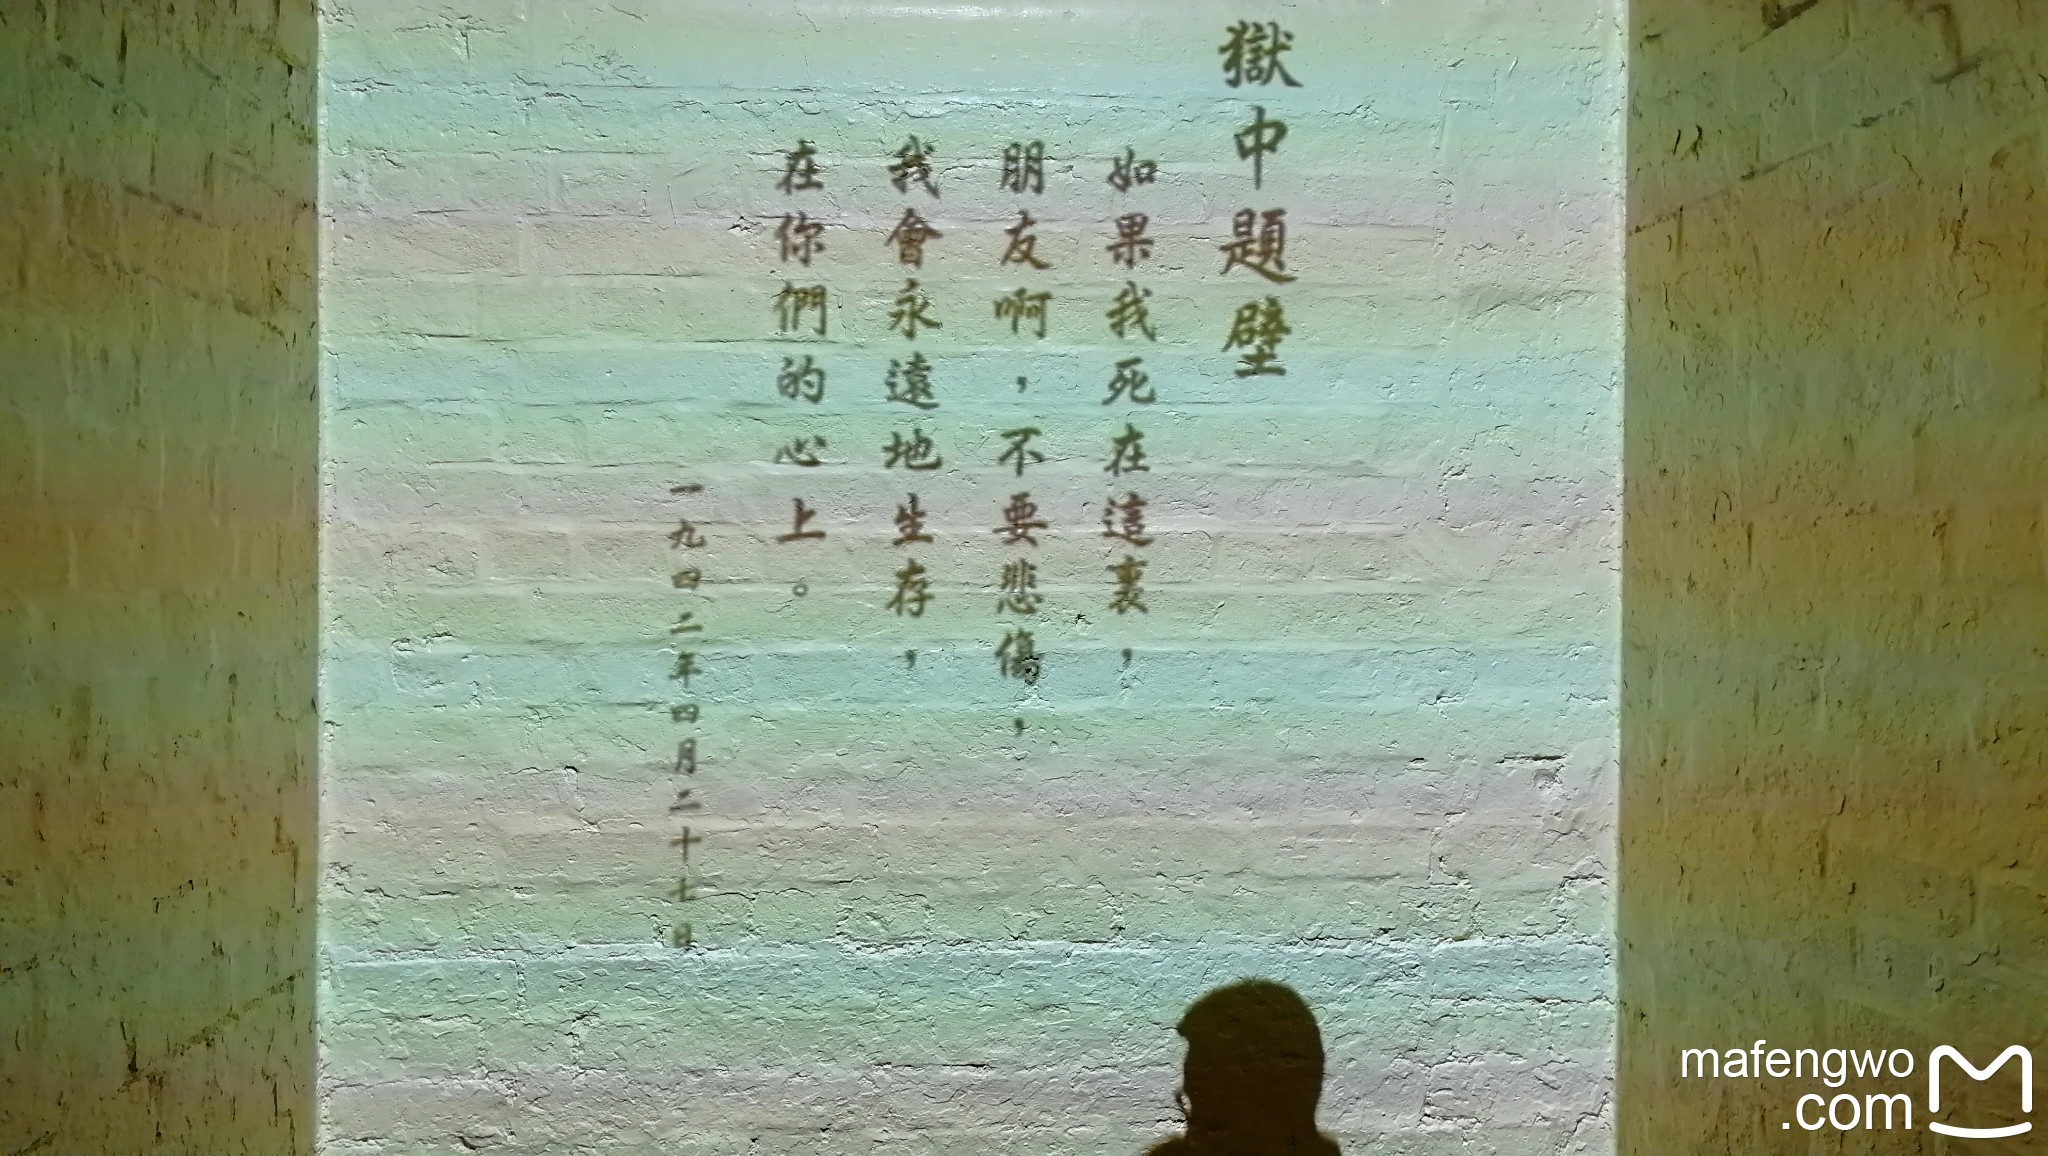 獄中題壁
如果我死在這裏，
朋友啊，不要悲傷，
我會永遠地生存，
在你們的心上。
一九四二年四月二十七日
mafengwo
.com